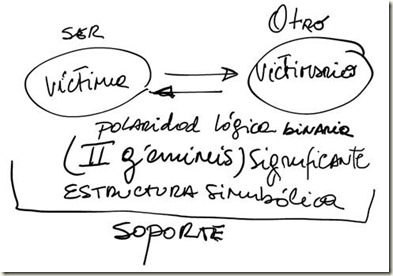 SER
OTRO
Víctima
Victimario
POLARIDAD LÓGICA BINARIA
(II géminis) Significante
ESTRUCTURA SIMBÓLICA
SOPORTE